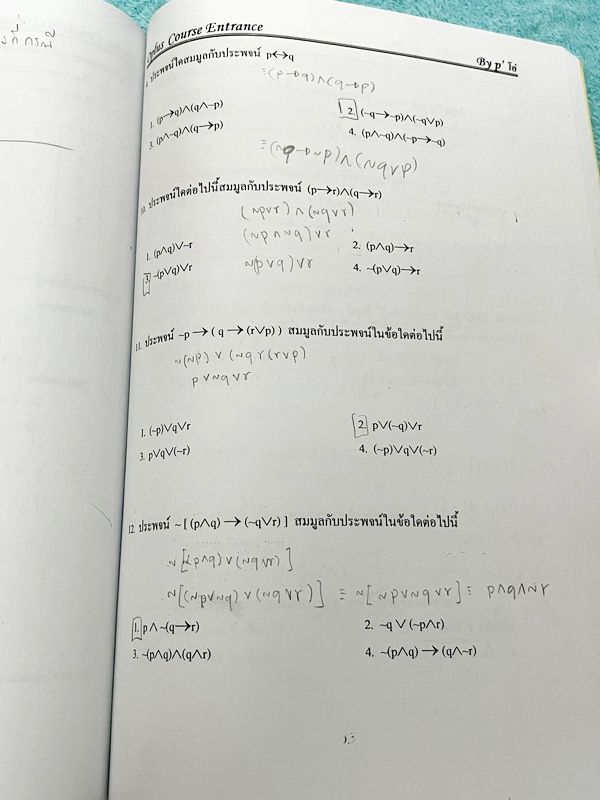 Course Entrance
By p' โอ๋
ประพจน์ใดสมมูลกับประพจน์ p↔q
≡(p→q)∧(q→p)
1. (p→q)∧(q∧~p)
2. (~q→~p)∧(~q∨p)
3. (p∧~q)∧(q→p)
4. (p∧~q)∧(~p→~q)
≡(~q→~p)∧(~q∨p)
10. ประพจน์ใดต่อไปนี้สมมูลกับประพจน์ (p→r)∧(q→r)
(~p∨r)∧(~q∨r)
(~p∧~q)∨r
1. (p∧q)∨~r
2. (p∧q)→r
~(p∨q)∨r
3. ~(p∨q)∨r
4. ~(p∨q)→r
11. ประพจน์ ~p → ( q → (r∨p) ) สมมูลกับประพจน์ในข้อใดต่อไปนี้
~(~p) ∨ (~q ∨ (r∨p)
p∨~q∨r
1. (~p)∨q∨r
2. p∨(~q)∨r
3. p∨q∨(~r)
4. (~p)∨q∨(~r)
12. ประพจน์ ~ [ (p∧q) → (~q∨r) ] สมมูลกับประพจน์ในข้อใดต่อไปนี้
~[~(p∧q) ∨ (~q∨r)]
~[(~p∨~q) ∨ (~q∨r)] ≡ ~[~p∨~q∨r] ≡ p∧q∧~r
1. p∧~(q→r)
2. ~q∨(~p∧r)
3. ~(p∧q)∧(q∧r)
4. ~(p∧q) → (q∧~r)